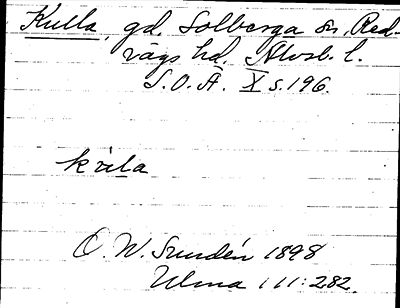 Kulla, gd. Solberga sn, Red-
vägs hd. Älvsb. l.
S.O.Ä. X s. 196.
O. W. Sundén 1898
Ulma 111:282.